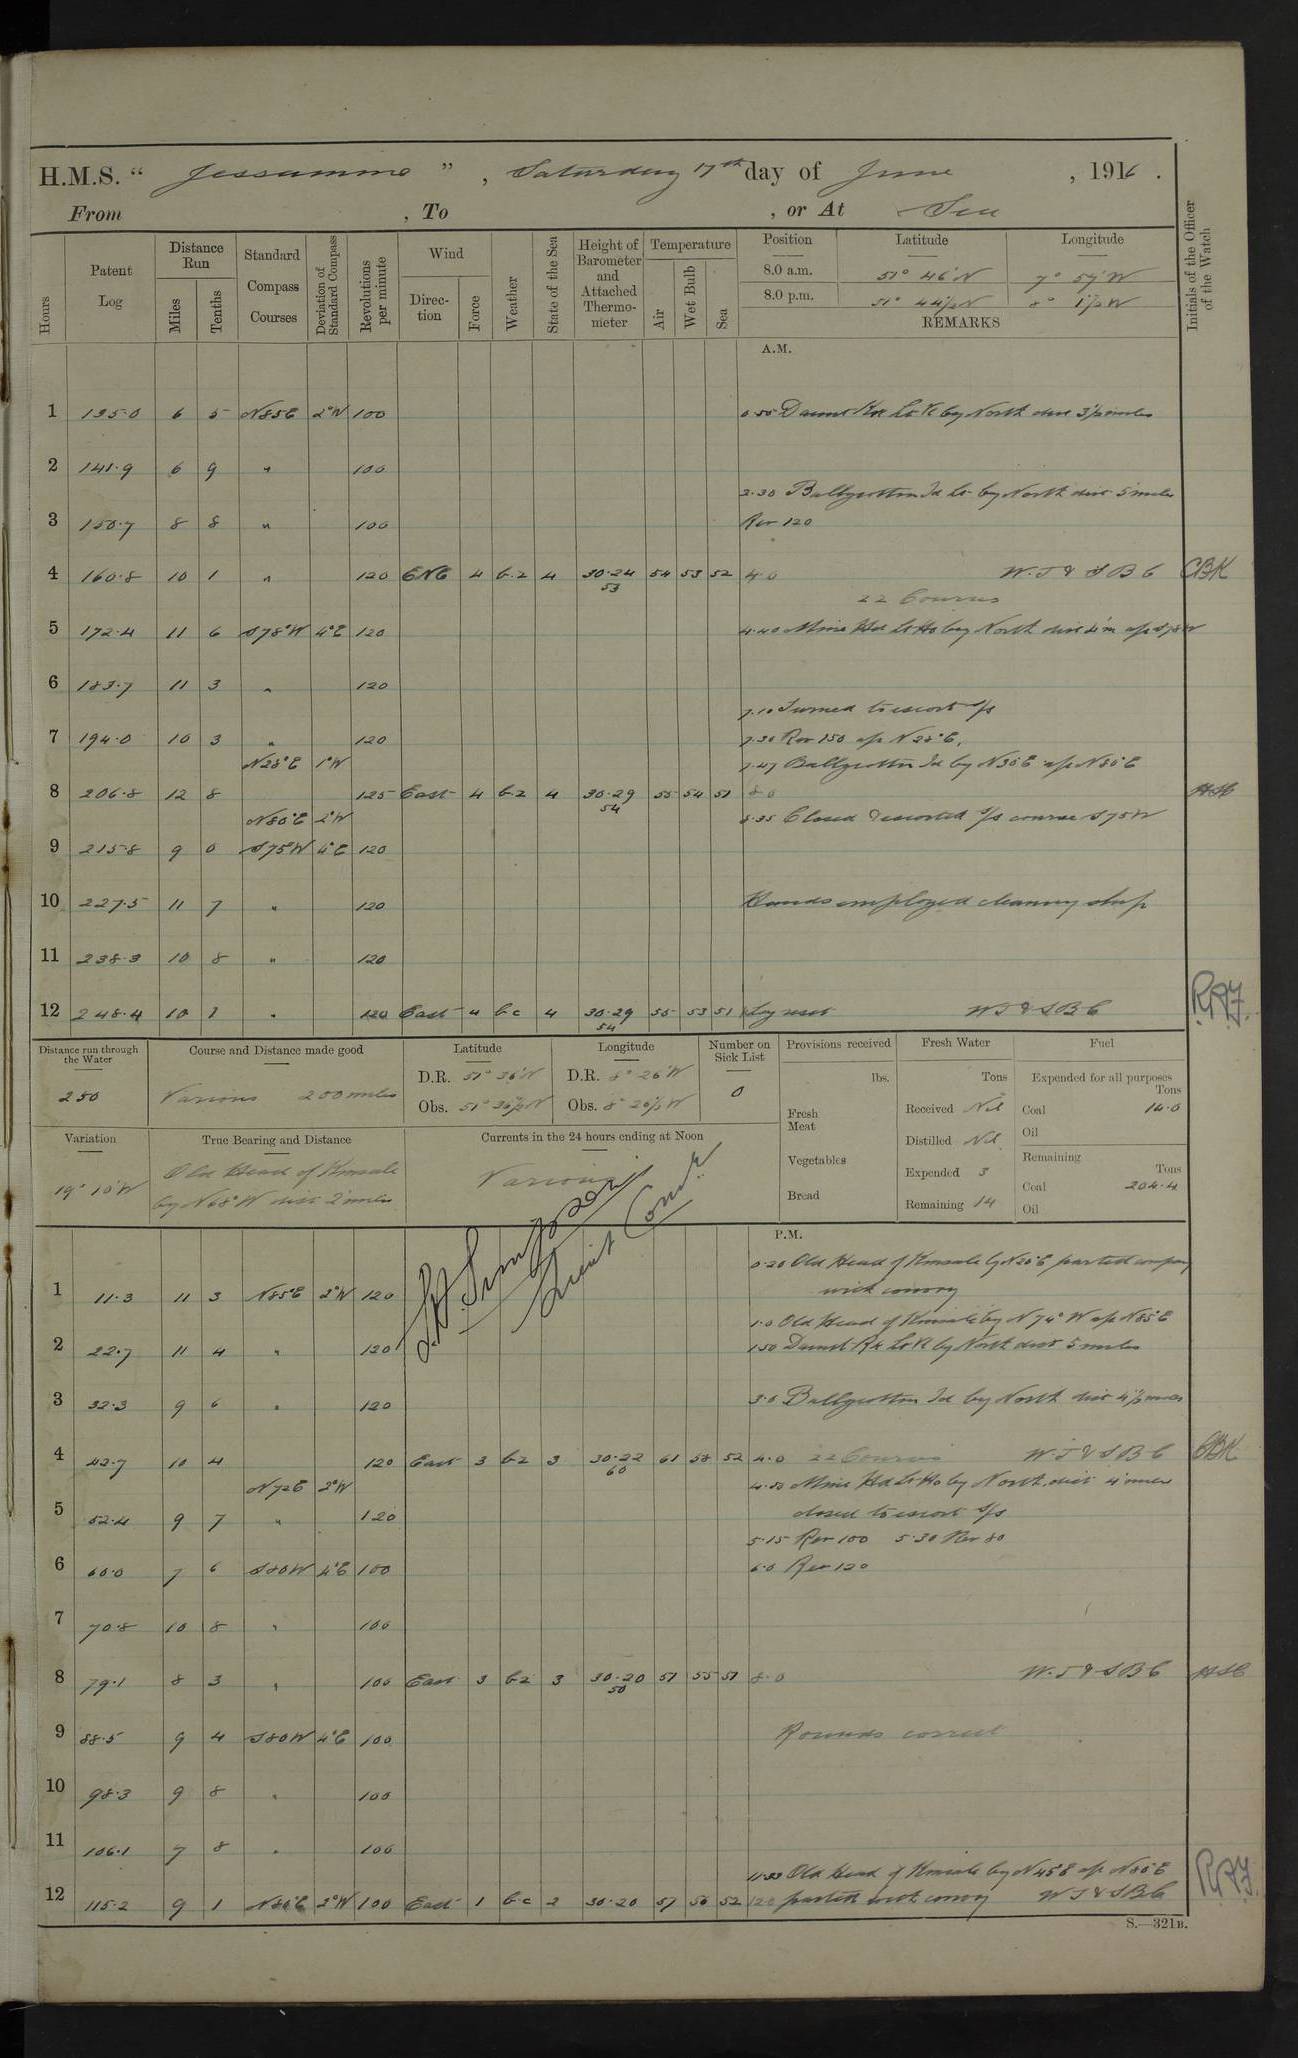 H.M.S. " Jessamine ", Saturday 17th day of June , 1916.
From , To , or At Sea
Hours
Patent Log
Distance Run
Miles
Tenths
Standard Compass Courses
Deviation of Standard Compass
Revolutions per minute
Wind
Direction
Force
Weather
State of the Sea
Height of Barometer and Attached Thermometer
Temperature
Air
Wet Bulb
Sea
Position Latitude Longitude
8.0 a.m. 51° 46' N 7° 57' W
8.0 p.m. 51° 44½ N 8° 1½ W
REMARKS
Initials of the Officer of the Watch
A.M.
1 135.0 6 5 N85E 2°W 100 0.50 Daunt Rk Lt V by North dist 3½ miles
2 141.9 6 9 " 100
2.30 Ballycotton Id Lt by North dist 5 miles
3 150.7 8 8 " 100 Rev 120
4 160.8 10 1 " 120 ENE 4 b.z 4 30.24 54 53 52 4.0 W.T & S B C CBK
53
22 Courses
5 172.4 11 6 S78°W 4°E 120 4.40 Mine Hd Lt Ho by North dist 4'm a/c S78W
6 183.7 11 3 " 120
7.10 Turned to escort S/s
7 194.0 10 3 " 120 7.30 Rev 150 a/c N28°E.
N28°E 1°W 7.47 Ballycotton Id by N30E a/c N80°E
8 206.8 12 8 125 East 4 b.z 4 30.29 55 54 51 8.0
54
N80°E 2°W 8.35 Closed & escorted S/s course S75W
9 215.8 9 0 S75W 4°E 120
10 227.5 11 7 " 120 Hands employed cleaning ship
11 238.3 10 8 " 120
12 248.4 10 1 " 120 East 4 b.c 4 30.29 55 53 51 Log reset W T & S B C
54
Distance run through the Water
250
Course and Distance made good
Various 200 miles
Latitude
D.R. 51° 36' N
Obs. 51° 36½ N
Longitude
D.R. 8° 26' W
Obs. 8° 26½ W
Number on Sick List
0
Provisions received
lbs.
Fresh Meat
Vegetables
Bread
Fresh Water
Tons
Received Nil
Distilled Nil
Expended 3
Remaining 14
Fuel
Expended for all purposes
Tons
Coal 14.0
Oil
Remaining
Tons
Coal 204.4
Oil
Variation
19° 10' W
True Bearing and Distance
Old Head of Kinsale
by N68°W dist 2 miles
Currents in the 24 hours ending at Noon
Various
Lieut Comdr
P.M.
0.20 Old Head of Kinsale by N20°E parted company
1 11.3 11 3 N85°E 2°W 120 with convoy
1.0 Old Head of Kinsale by N74°W a/c N85°E
2 22.7 11 4 " 120 1.50 Daunt Rk Lt V by North dist 5 miles
3 32.3 9 6 " 120 3.0 Ballycotton Id by North dist 4½ miles
4 42.7 10 4 120 East 3 b.z 3 30.22 61 58 52 4.0 22 Courses W.T & S B C CBK
60
N72E 2°W 4.50 Mine Hd Lt Ho by North dist 4 miles
5 52.4 9 7 " 120 closed to escort S/s
5.15 Rev 100 5.30 Rev 80
6 60.0 7 6 S80W 4°E 100 6.0 Rev 120
7 70.8 10 8 " 100
8 79.1 8 3 " 100 East 3 b.z 3 30.20 57 55 51 8.0 W.T & S B C
50
9 88.5 9 4 S80W 4°E 100 Rounds correct
10 98.3 9 8 " 100
11 106.1 7 8 " 100
11.33 Old Head of Kinsale by N45E a/c N85E
12 115.2 9 1 N85°E 2°W 100 East 1 b.c 2 30.20 57 56 52 12.0 parted with convoy W T & S B C
S.—321B.